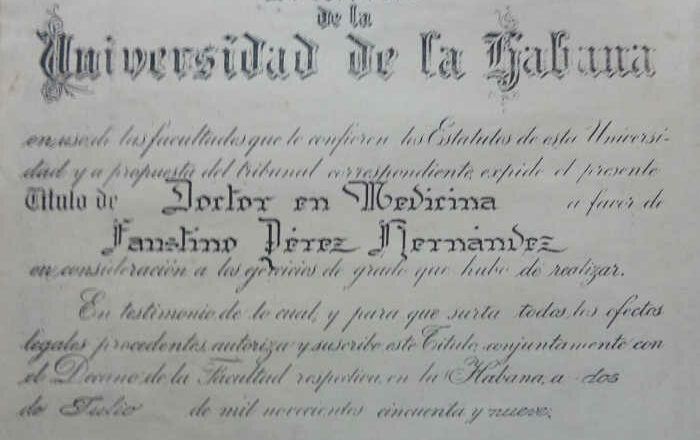 de la
Universidad de la Habana
en uso de las facultades que le confieren los Estatutos de esta Universi-
dad y a propuesta del tribunal correspondiente, expide el presente
Título de Doctor en Medicina a favor de
Faustino Pérez Hernández
en consideración a los ejercicios de grado que hubo de realizar.
En testimonio de lo cual, y para que surta todos los efectos
legales procedentes, autoriza y suscribe este Título, conjuntamente con
el Decano de la Facultad respectiva, en la Habana, a dos
de Julio de mil novecientos cincuenta y nueve.